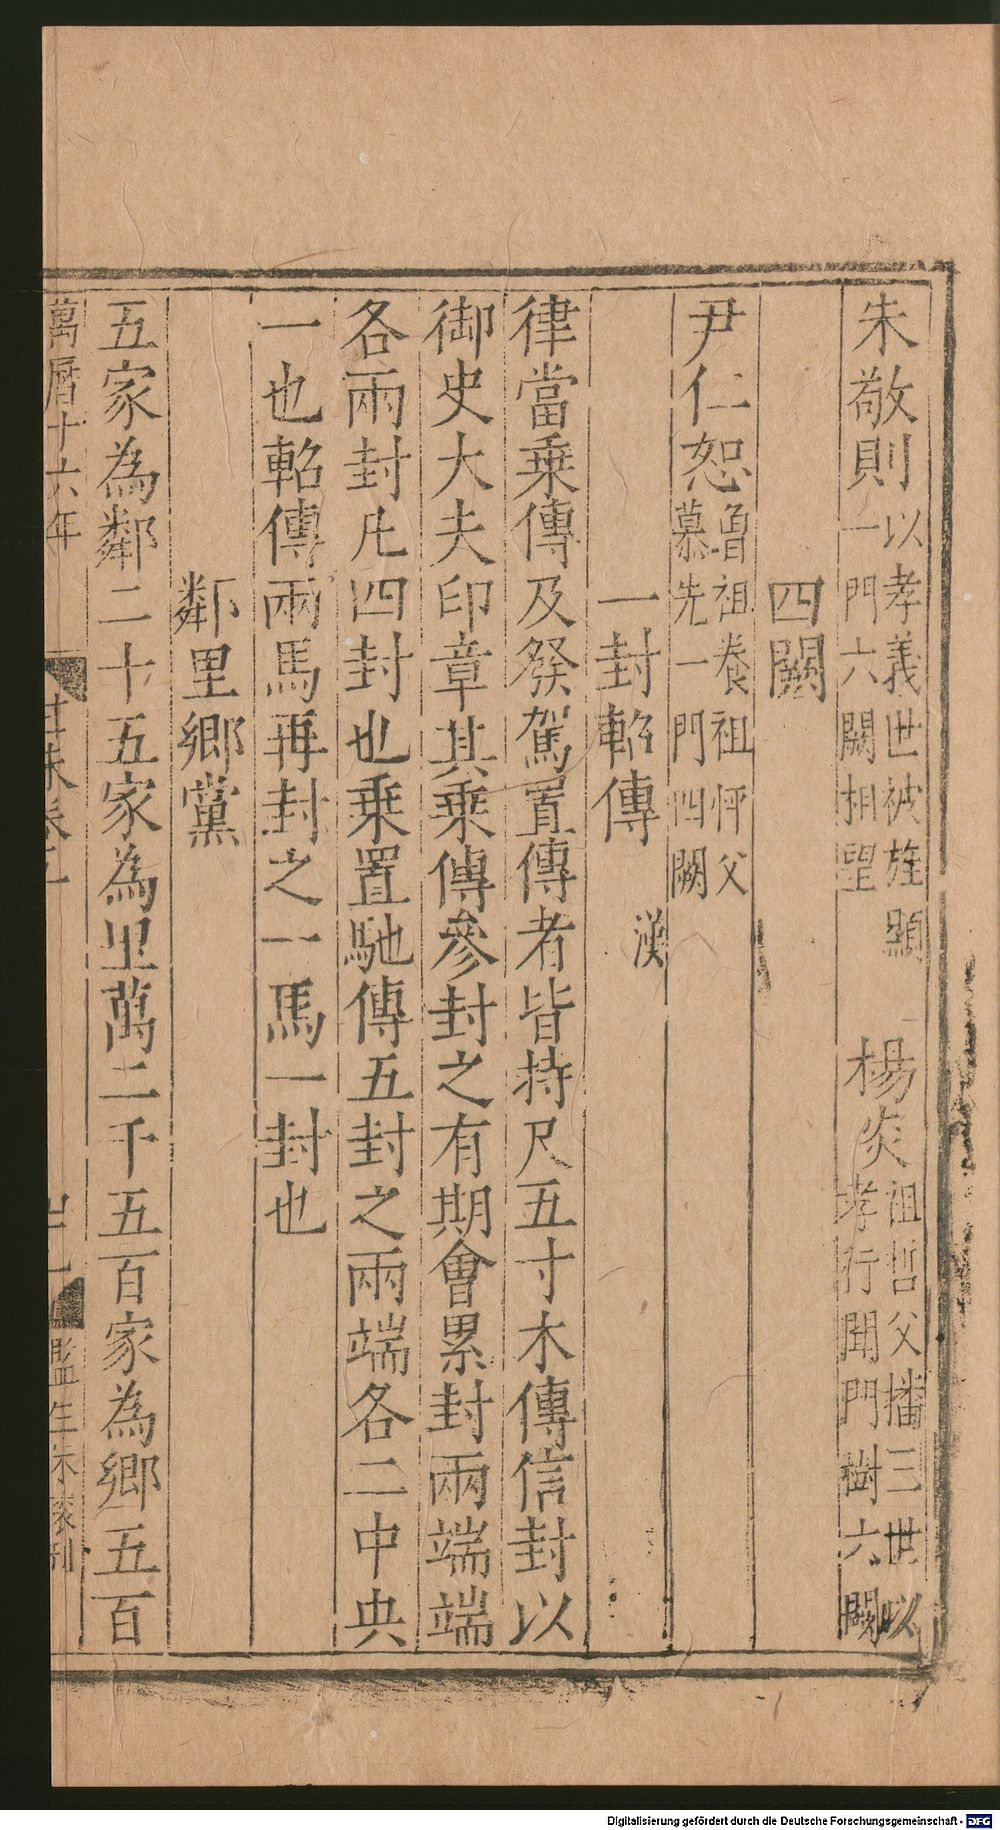 朱敬則以孝義世被旌顯一門六闕相望　楊炎祖哲父播三世以孝行聞門樹六闕
四闕
尹仁恕曾祖養祖怦父慕先一門四闕
一封軺傳　漢
律當乗傳及發駕置傳者皆持尺五寸木傳信封以
御史大夫印章其乗傳參封之有期㑹累封兩端端
各兩封凡四封也乗置馳傳五封之兩端各二中央
一也軺傳兩馬再封之一馬一封也
鄰里鄉黨
五家為鄰二十五家為里萬二千五百家為鄉五百
萬曆十六年
監生朱 刊
Digitalisierung gefördert durch die Deutsche Forschungsgemeinschaft - DFG